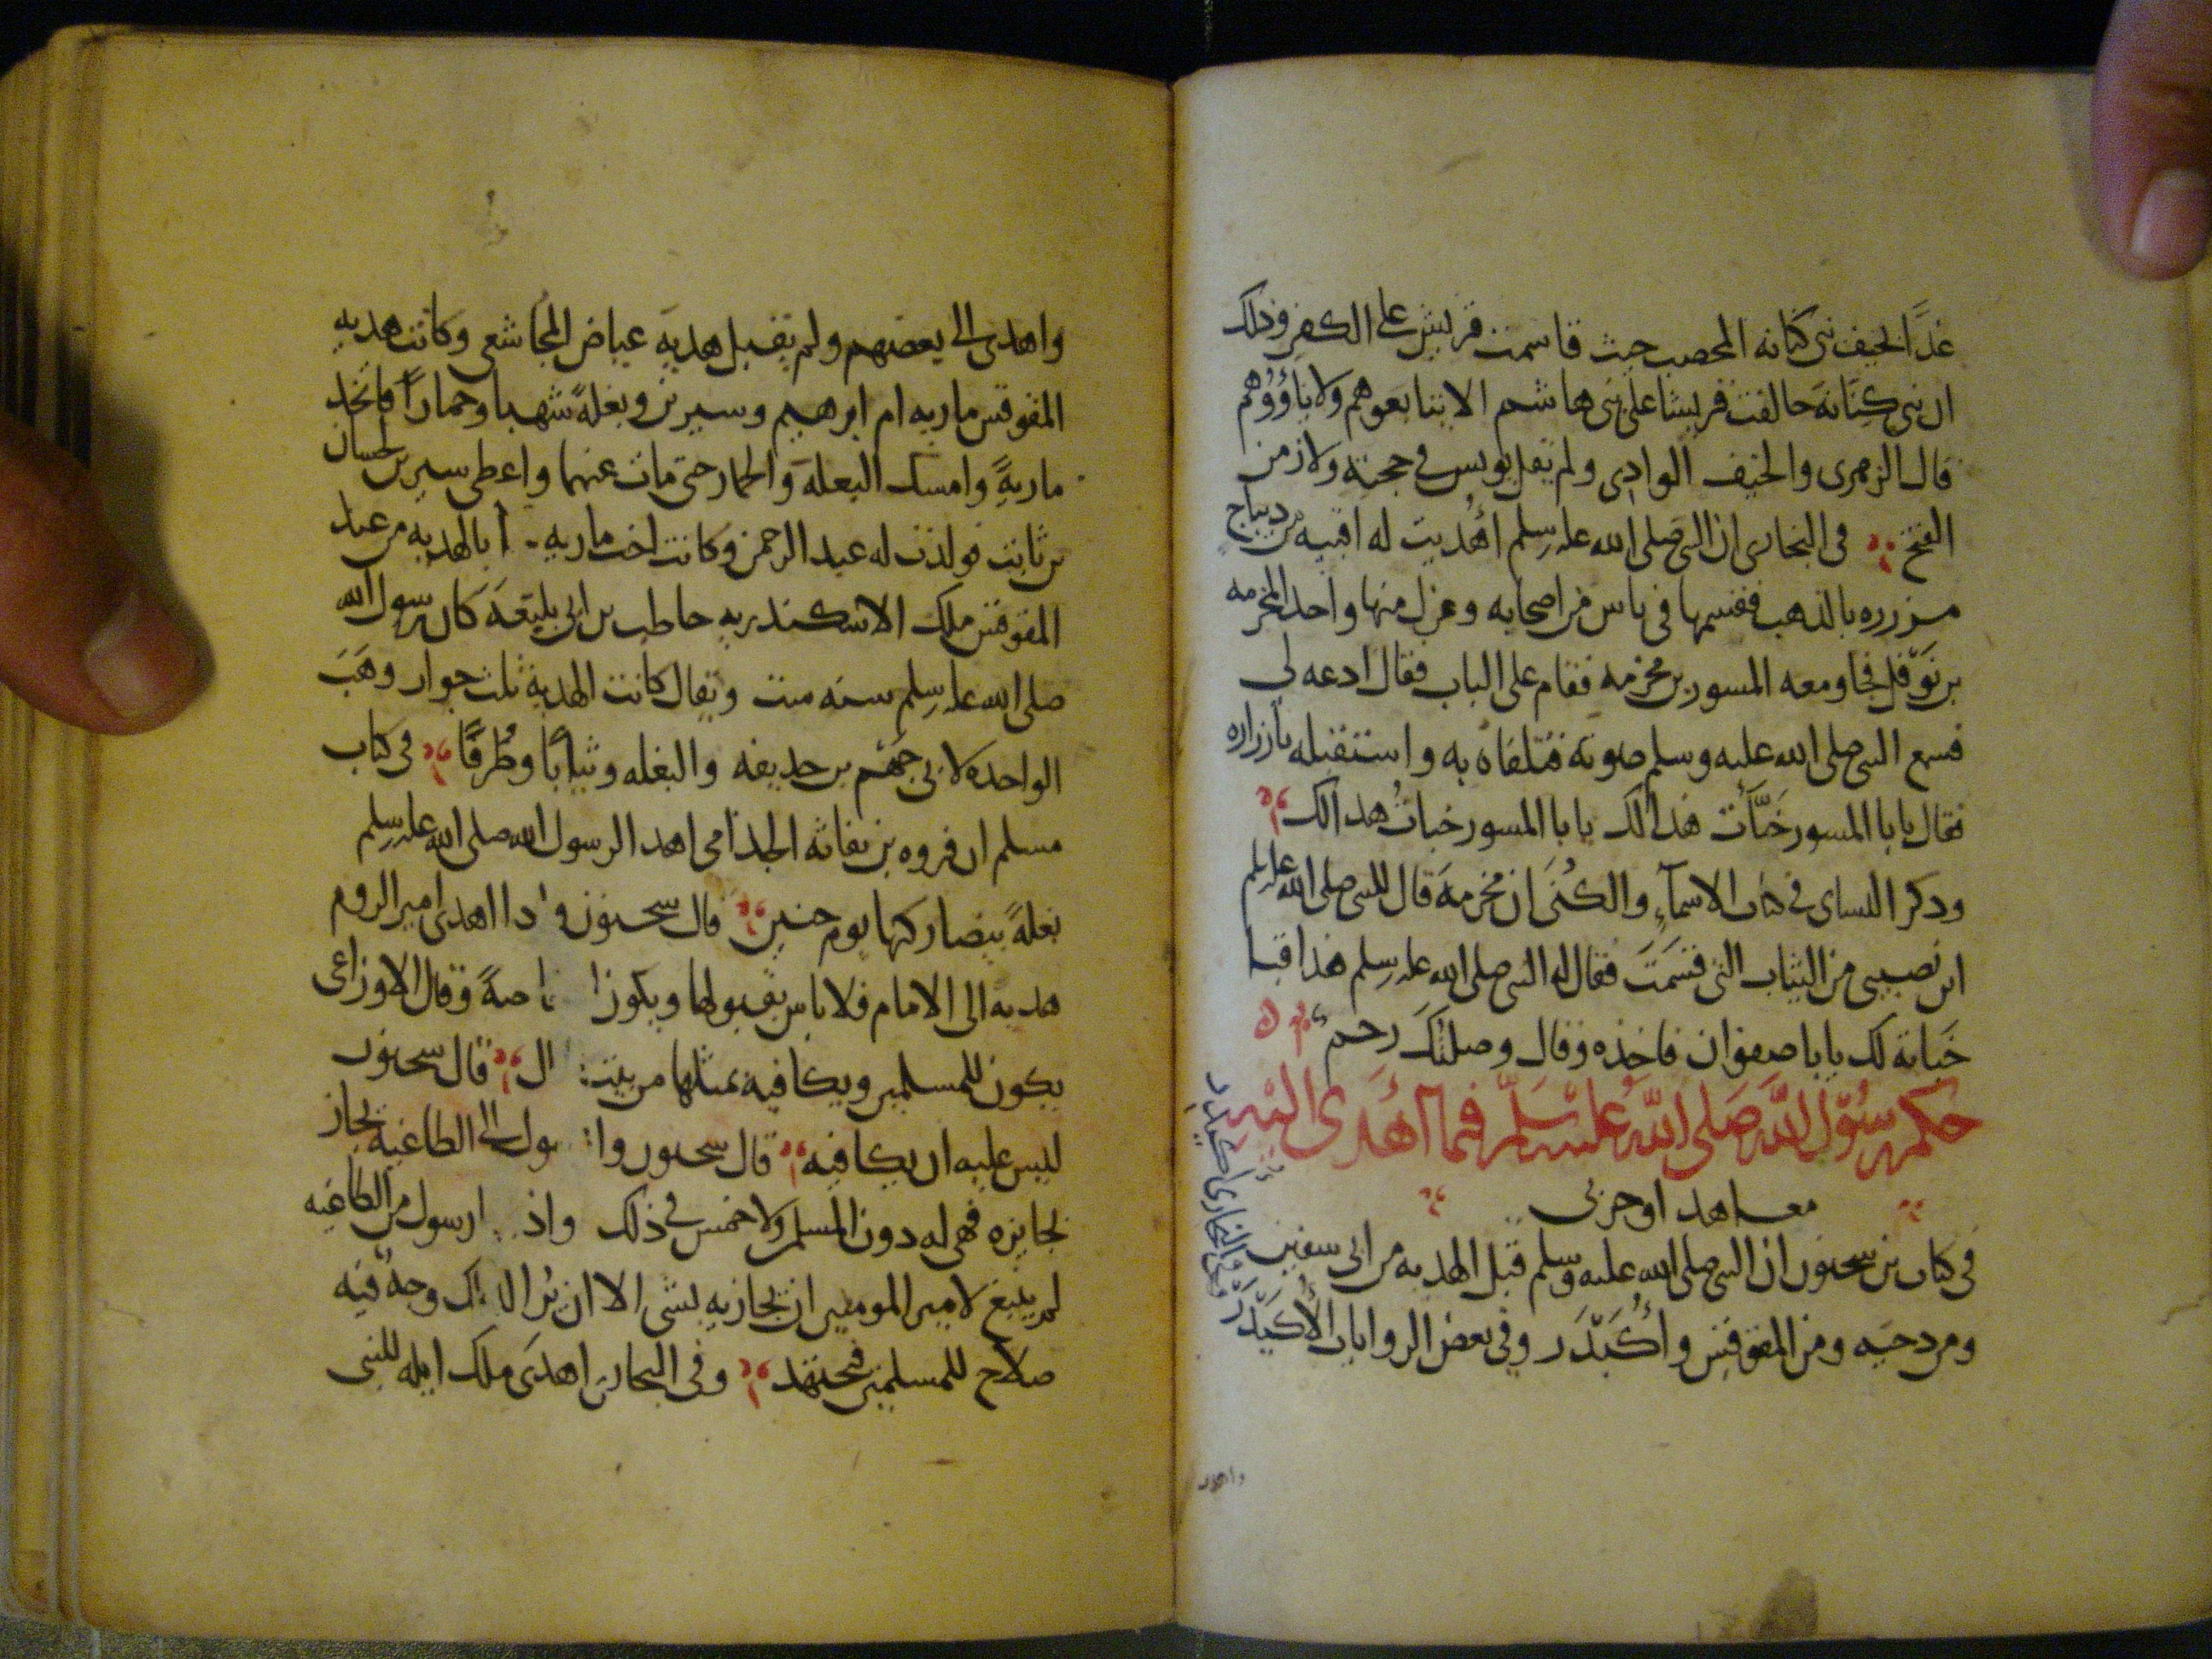 غدًا الخيف بني كنانه المحصب حيث قاسمت قريش على الكفر وذلك
ان بني كِنَانَةَ حالفت قريشا على بني هاشم الا يبايعوهم ولا يأووهم
قال الزهرى والخيف الوادى ولم يقل يونس فى حجته ولا زمن
الفتح في البخارى ان النبي صلى الله عليه وسلم اهُديت له اقبيه من ديباج
مزرره بالذهب فقسمها في ناس من اصحابه وعزل منها واحد المخرمه
بن نَوفل فجا ومعه المسور بن مخرمه فقام على الباب فقال ادعه لى
فسمع النبى صلى الله عليه وسلم صوته فتلقاه به واستقبله بازراره
فقال يابا المسور خَبَّأت هذا لك يابا المسور خبات هدا لك
وذكر النساى في كتاب الاسمآءِ والكُنَى ان مخرمة قال للنبى صلى الله عليه وسلم
اين نصيبي من الثياب التى قسَمَتَ فقال له النبى صلى الله عليه وسلم هذا قبا
خَباته لك يابا صفوان فاخذه وقال وصلتكَ رحم
حكم رسُول الله صَلى الله عليه وسلم فيما اهُدى اليه
معاهد او حربى
فى كتاب بن سحنون ان النبى صلى الله عليه وسلم قبل الهديه من ابى سفين
ومن دحيه ومن المقوقس واُكَيْدَر وفي بعض الروايات الاُكَيدَر
وفي البخارى اكيدر
واهدى
واهدى الى بعضهم ولم يقبل هديه عياض المجاشعى وكانت هديه
المقوقس ماريه ام ابرهيم وسيرين وبغلةً شهبا وحمارًا فاتخذ
ماريةً وامسك البغلة والحمار حتى مات عنهما واعطى سيرين لحسان
بن ثابت فولدت له عبد الرحمن وكانت اخت ماريه بالهديه من عند
المقوقس ملك الاسكندريه حاطب بن ابى بلتعة كان رسول الله
صلى الله عليه وسلم سنه ست ويقال كانت الهديه ثلث جوار وهَبَ
الواحده لابى جَهْم بن حذيفه والبغله وثيابًا وطُرفًا في كتاب
مسلم ان فروه بن نفاثه الجذامى اهدا لرسول الله صلى الله عليه وسلم
بغلةً بيضا ركبها يوم حنين قال سحنون واذا اهدى امير الروم
هديه الى الامام فلا باس بقبولها ويكون اصةً وقال الاوزاعى
يكون للمسلمين ويكافيه بمثلها من بيت ال قال سحنون
ليس عليه ان يكافيه قال سحنون وا ول الى الطاغيه بجاز
بجايزه فهى له دون المسلمين ولا خمس في ذلك واذ ا رسول من الطاغيه
لم ينبغ لامير المومنين ان يجازيه بشى الا ان يرا لذلك وجهُ فيه
صلاح للمسلمين فيجتهد وفي البخارى اهدى ملك ايله للنبى